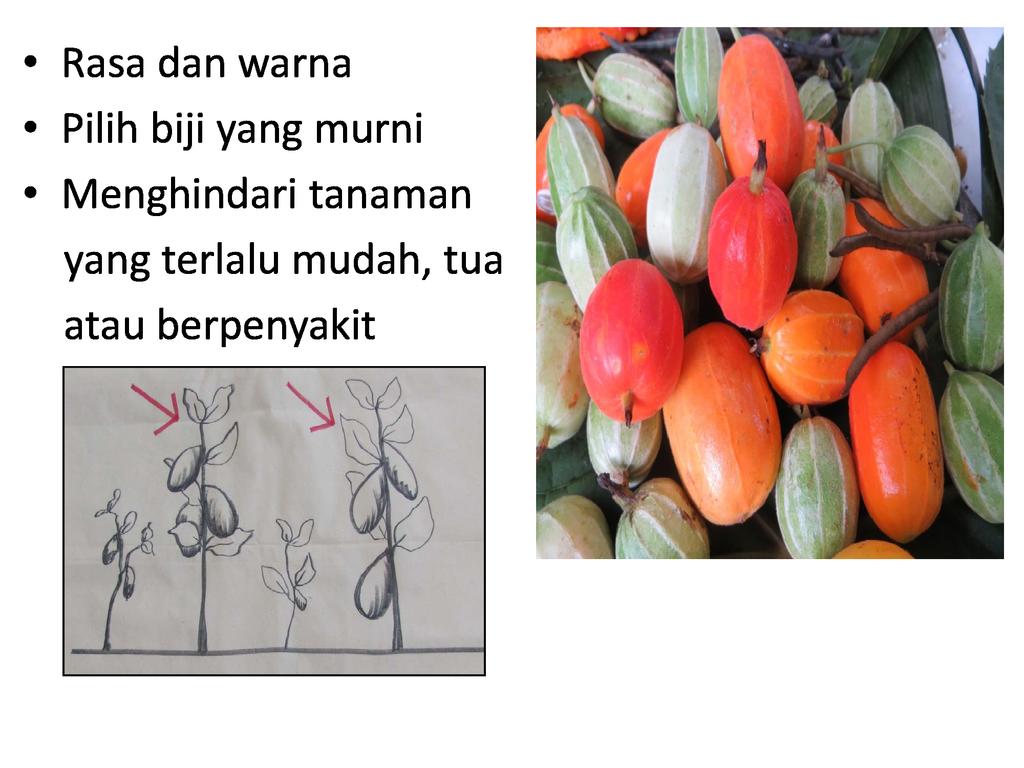 • Rasa dan warna
• Pilih biji yang murni
• Menghindari tanaman
yang terlalu mudah, tua
atau berpenyakit